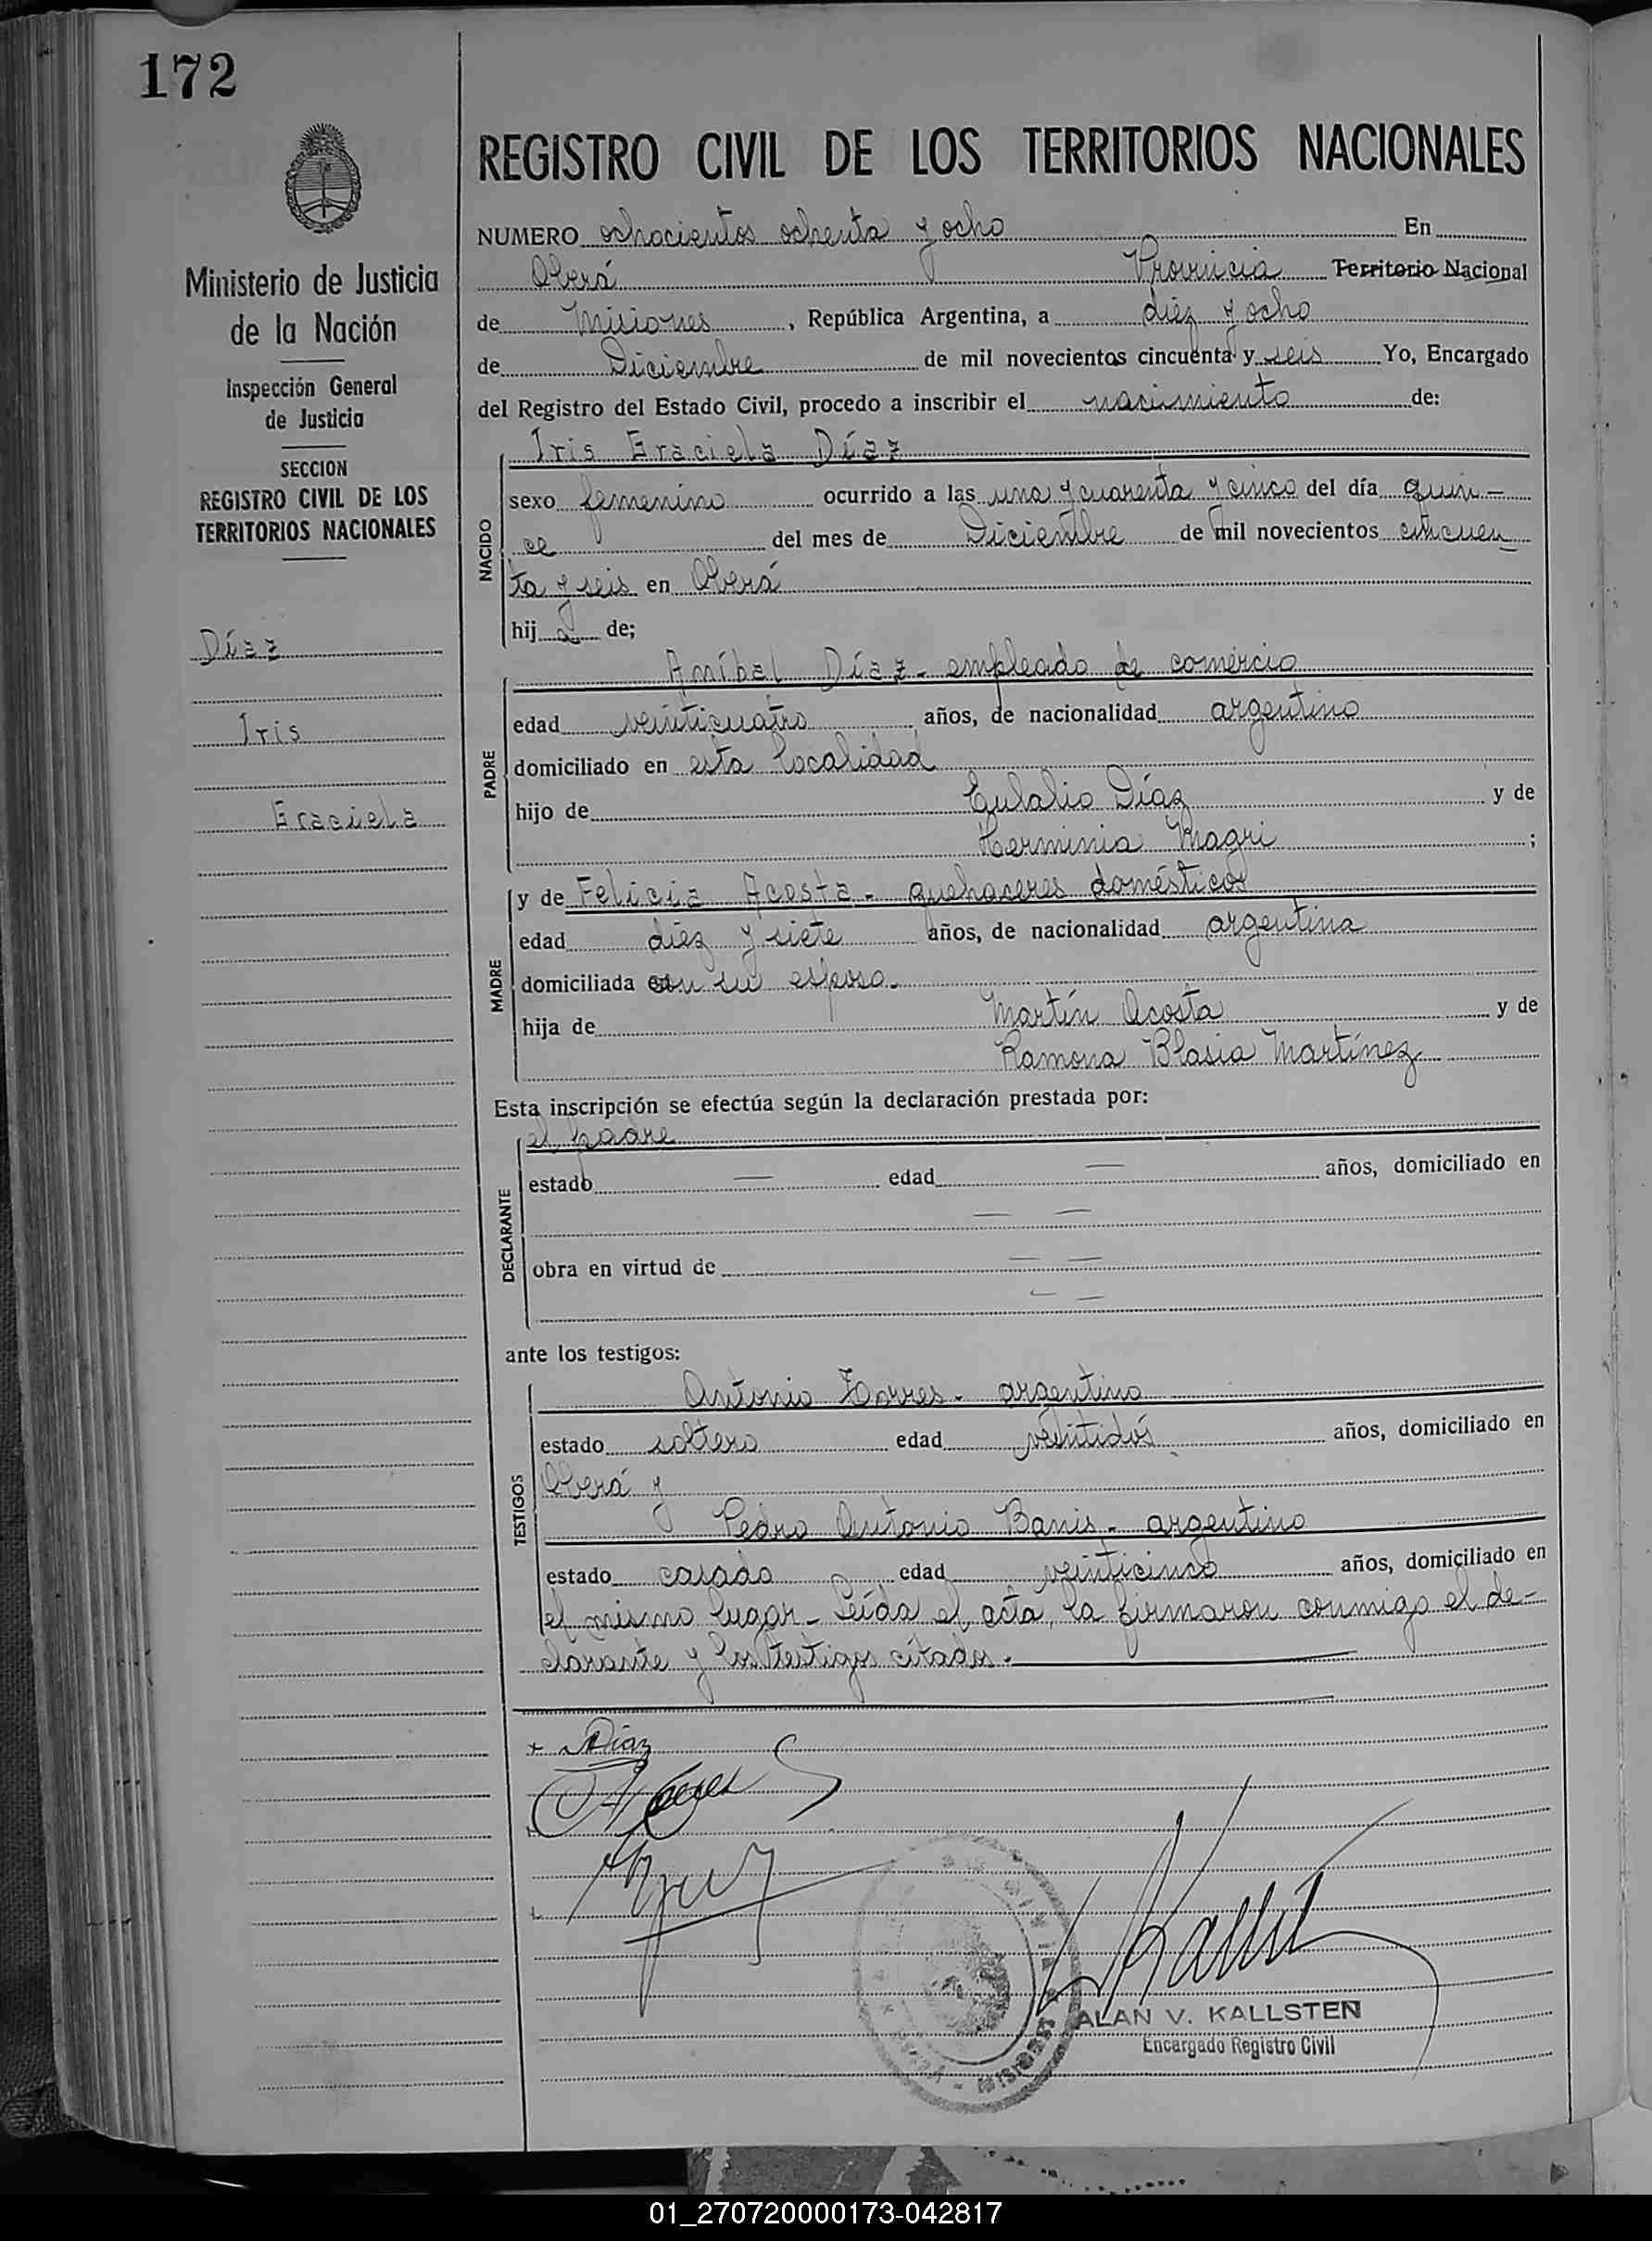 172
REGISTRO CIVIL DE LOS TERRITORIOS NACIONALES
Ministerio de Justicia
de la Nación
Inspección General
de Justicia
SECCION
REGISTRO CIVIL DE LOS
TERRITORIOS NACIONALES
Díaz
Iris
Graciela
NUMERO ochocientos ochenta y ocho En
Oberá Provincia Territorio Nacional
de Misiones, República Argentina, a diéz y ocho
de Diciembre de mil novecientos cincuenta y seis Yo, Encargado
del Registro del Estado Civil, procedo a inscribir el nacimiento de:
NACIDO
Iris Graciela Díaz
sexo femenino ocurrido a las una y cuarenta y cinco del día quin-
ce del mes de Diciembre de mil novecientos cincuen
ta y seis en Oberá
hija de;
PADRE
Aníbal Díaz - empleado de comércio
edad veinticuatro años, de nacionalidad argentino
domiciliado en esta localidad
hijo de Eulalio Díaz y de
Herminia Magri ;
MADRE
y de Felicia Acosta - quehaceres domésticos
edad diéz y siete años, de nacionalidad argentina
domiciliada con su esposo.
hija de Martín Acosta y de
Ramona Blasia Martínez
Esta inscripción se efectúa según la declaración prestada por:
DECLARANTE
el padre
estado — edad — años, domiciliado en
— —
obra en virtud de — —
— —
ante los testigos:
TESTIGOS
Antonio Torres - argentino
estado soltero edad veintidós años, domiciliado en
Oberá y
Pedro Antonio Banis - argentino
estado casado edad veinticinco años, domiciliado en
el mismo lugar - Leída el acta, la firmaron conmigo el de-
clarante y los testigos citados.
+ ADiaz
MISIONES
ALAN V. KALLSTEN
Encargado Registro Civil
01_270720000173-042817